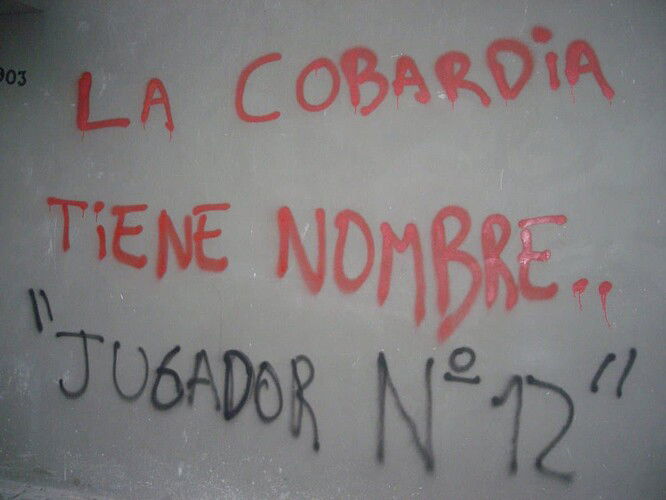 903
LA COBARDiA
TiENE NOMBRE..
"JUGADOR Nº 12"